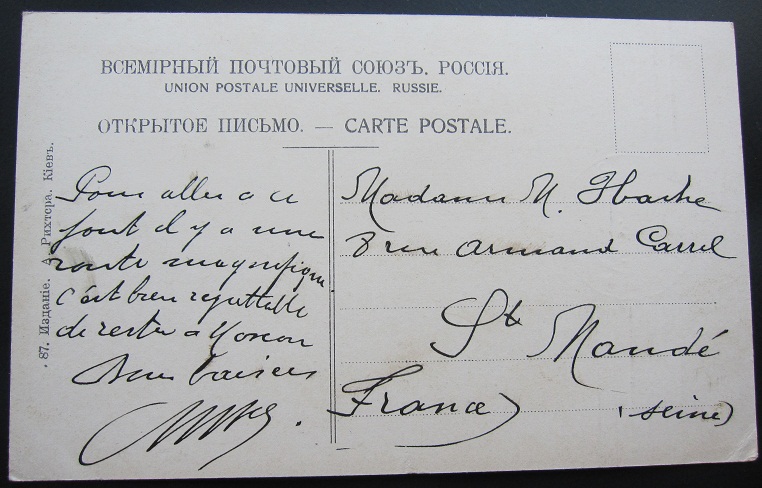 ВСЕМІРНЫЙ ПОЧТОВЫЙ СОЮЗЪ. РОССІЯ.
UNION POSTALE UNIVERSELLE. RUSSIE.
ОТКРЫТОЕ ПИСЬМО. — CARTE POSTALE.
87. Изданіе. А. Рихтера. Кіевъ.
Pour aller a ce
font il y a une
route magnifique
c'est bien regrettable
de rester a Moscou
baisers
Madame M.
8 rue Armand Carrel
St Mandé
France (Seine)